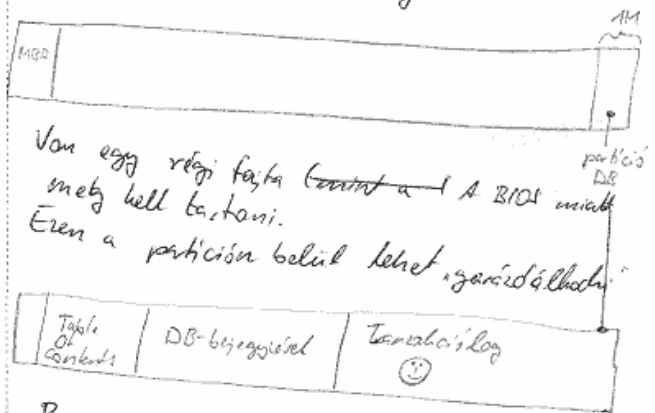 1M
MBR
partíció
DB
Van egy régi fajta (mint a A BIOS miatt
meg kell tartani.
Ezen a partíción belül lehet „garázdálkodni”
Table
Of
Contents
DB-bejegyzések
Tranzakcióslog